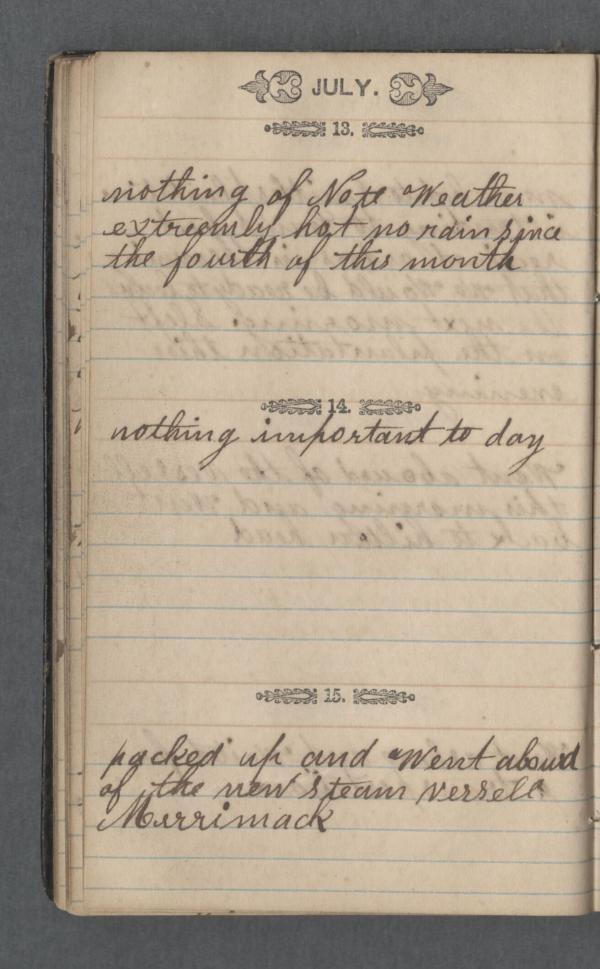 JULY.
13.
nothing of Note Weather
extreemly hot no rain since
the fourth of this month
14.
nothing important to day
15.
packed up and Went abourd
of the new steam vessell
Merrimack